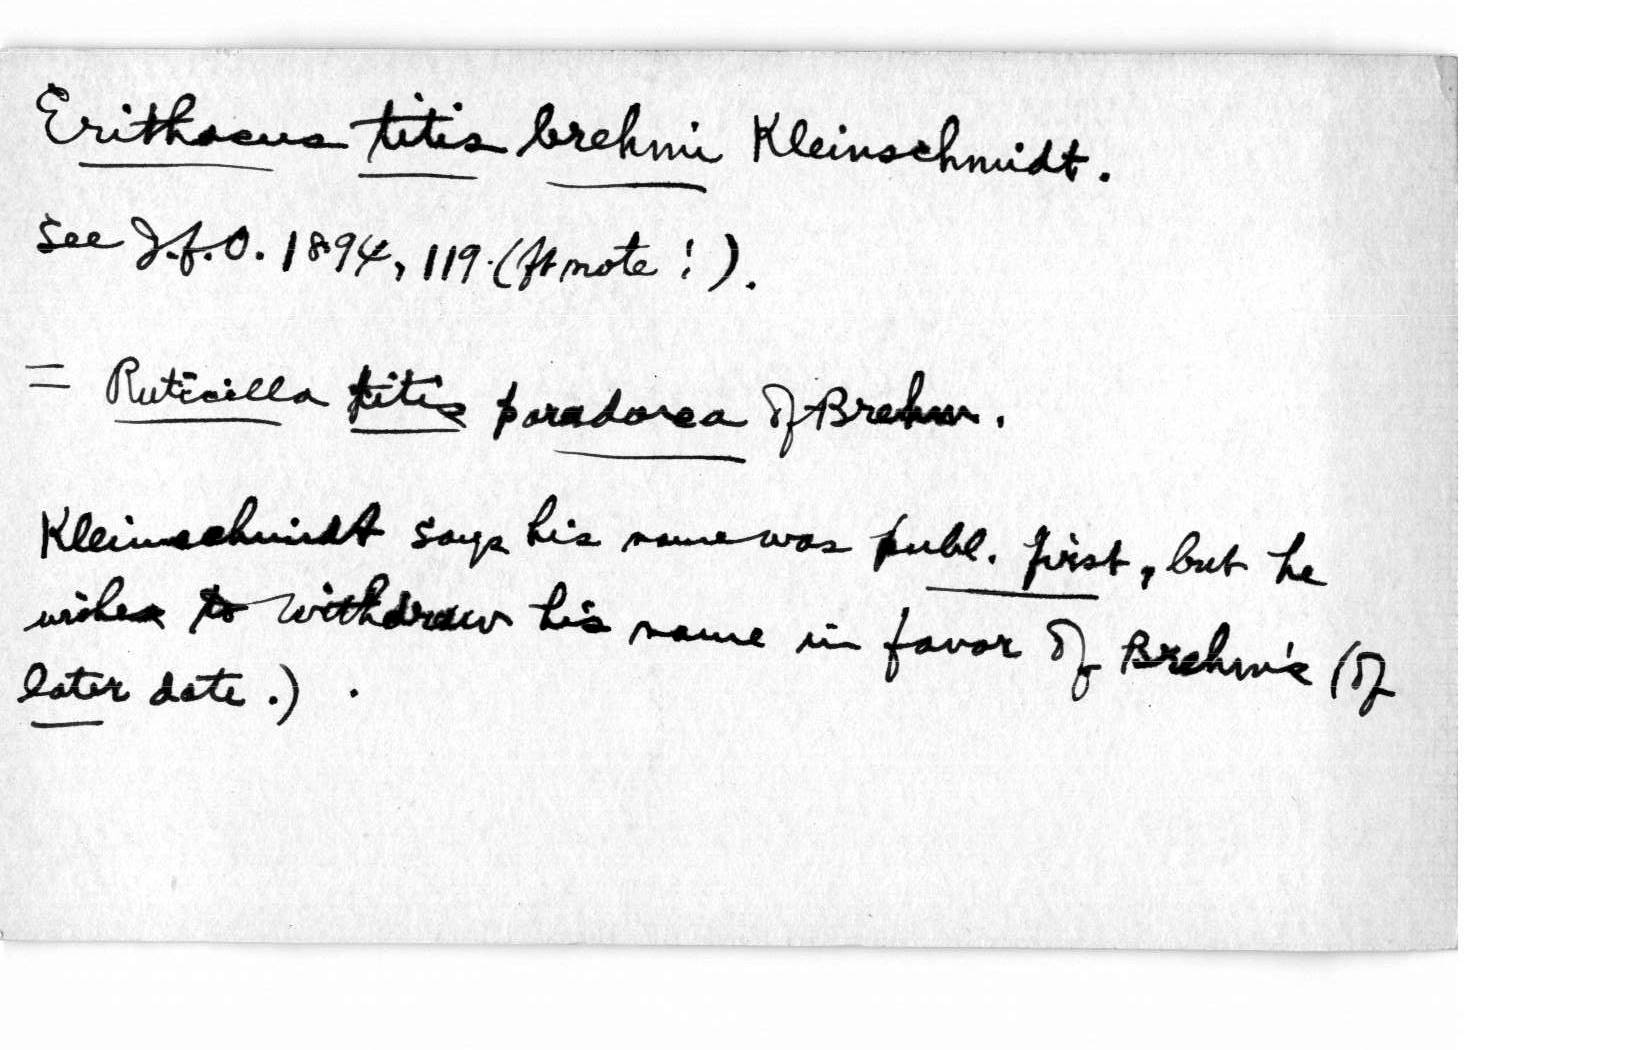 Erithacus titis brehmi Kleinschmidt.
See J.f.O. 1894, 119. (ftnote!).
= Ruticilla titis paradoxa of Brehm.
Kleinschmidt says his name was publ. first, but he
wishes to withdraw his name in favor of Brehm's (of
later date.) .